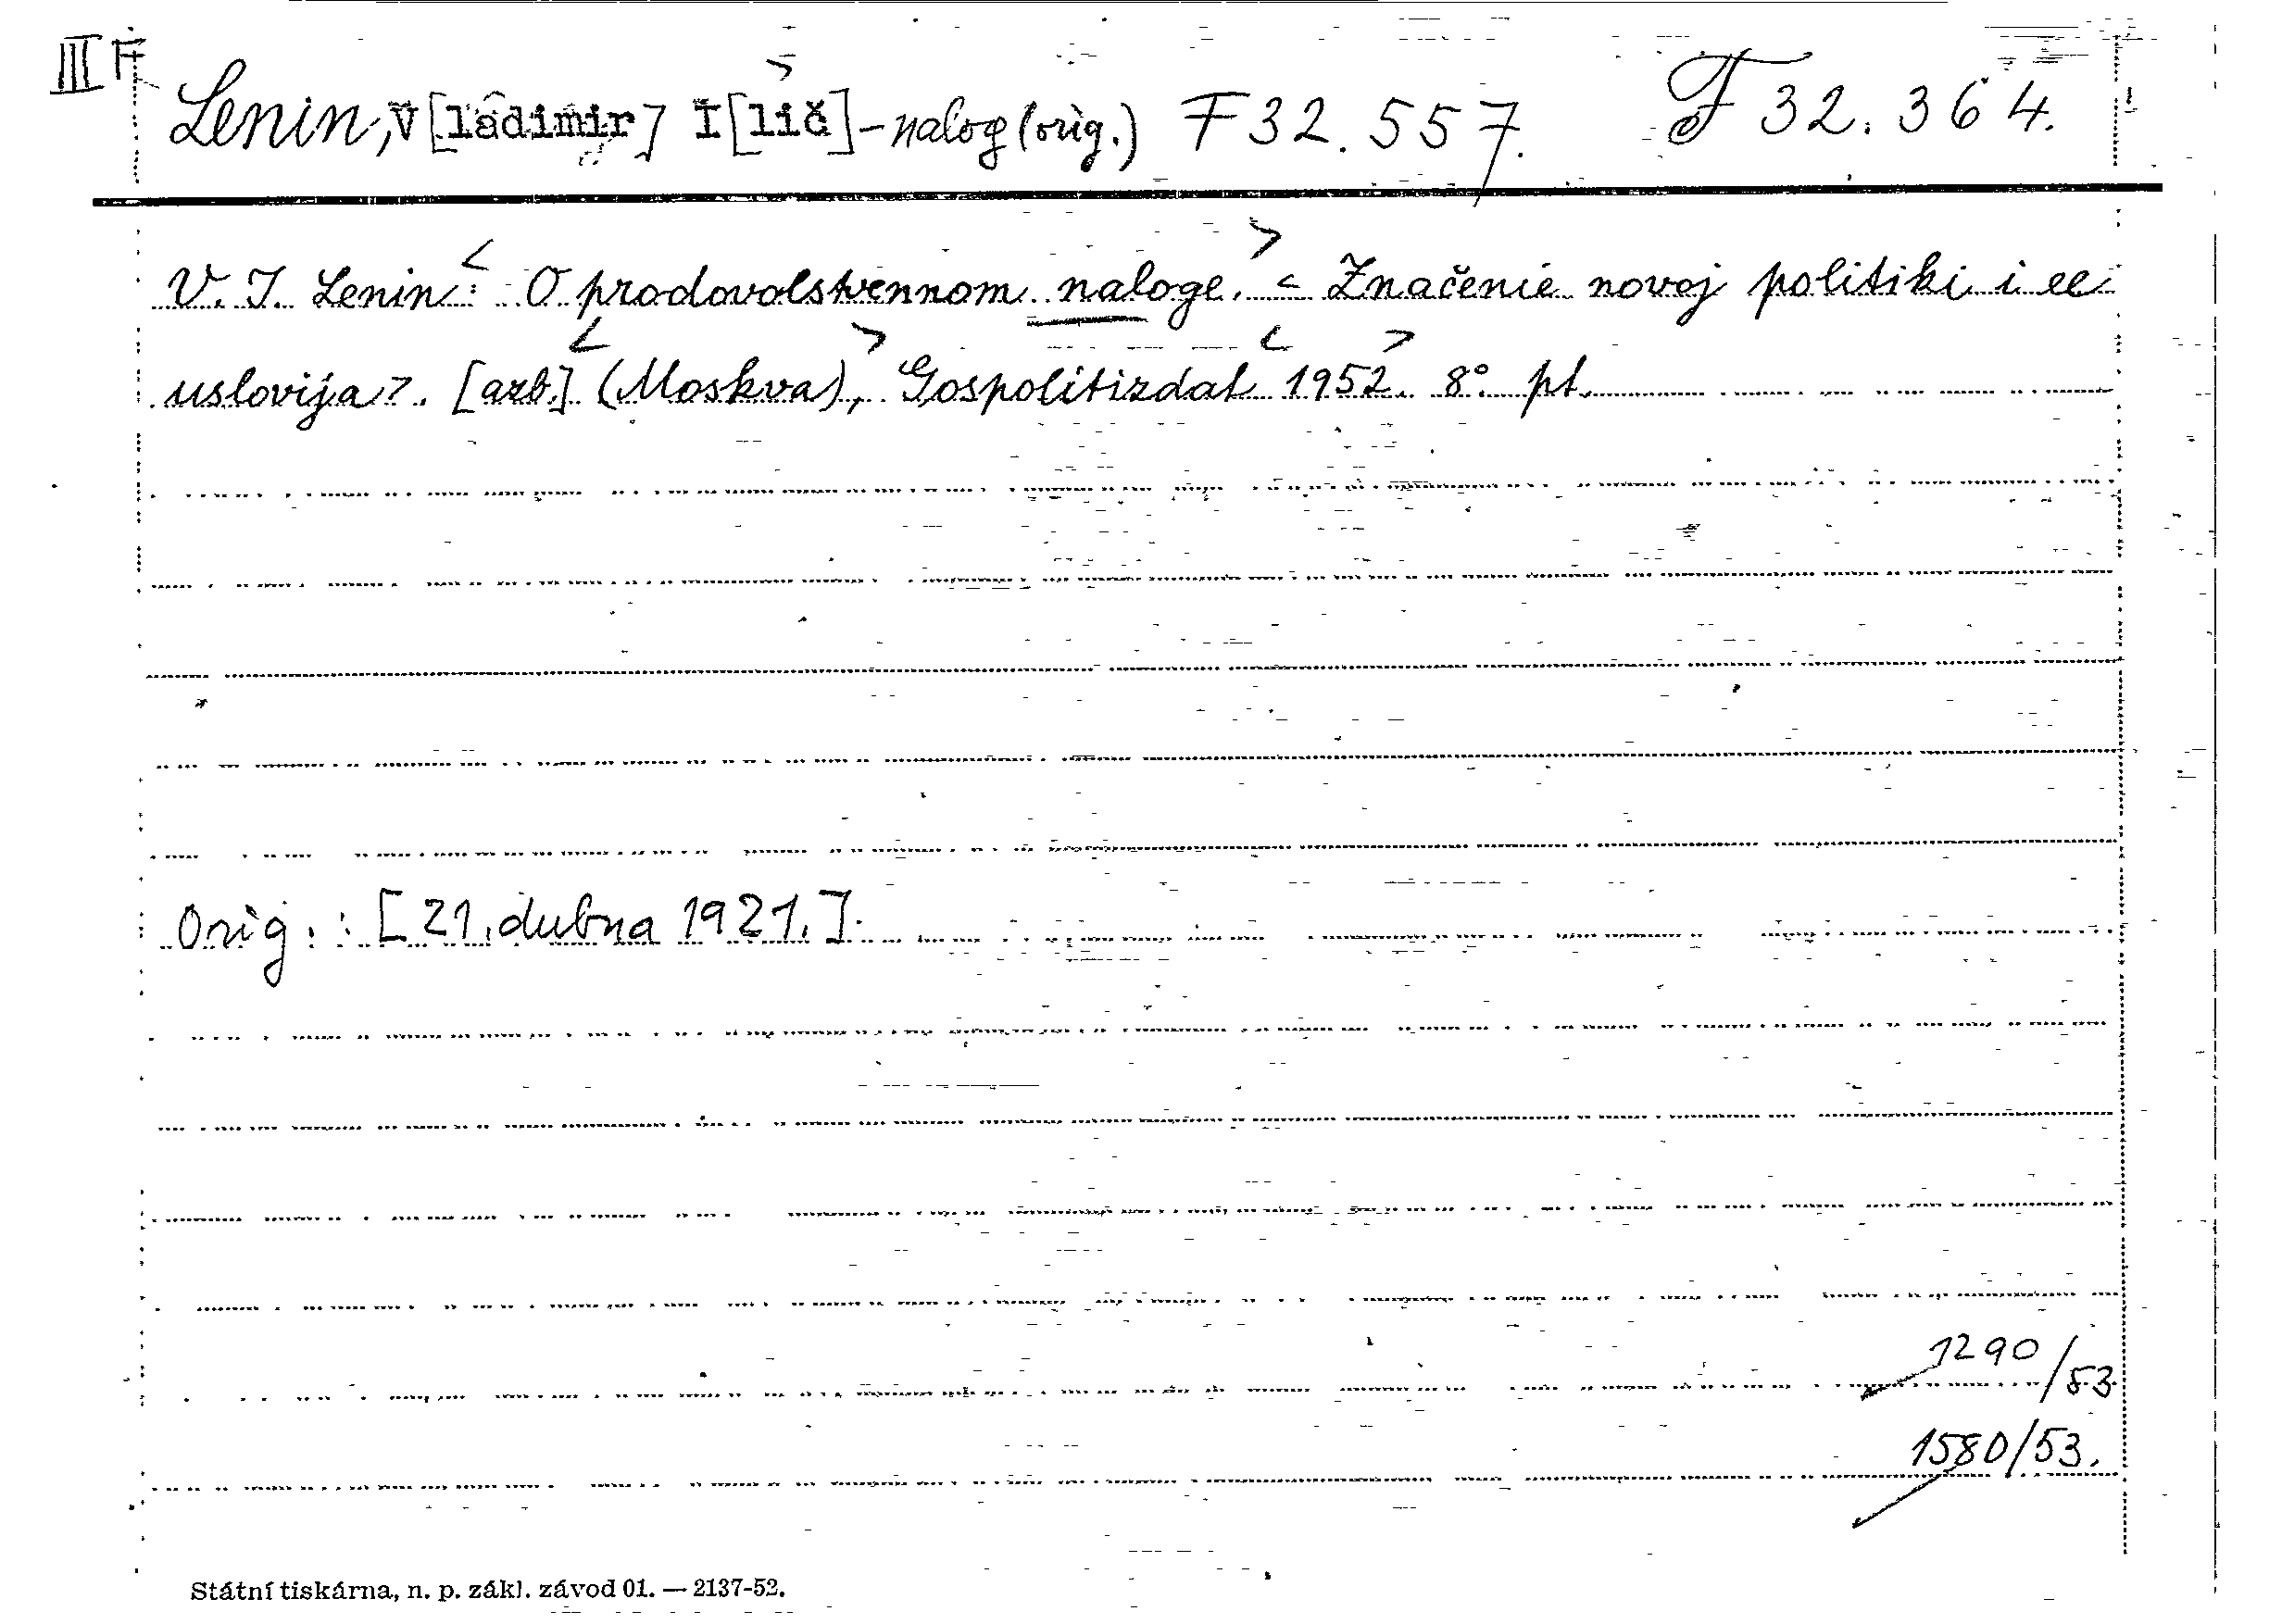 III F
Lenin, V[ladimir] I[lič] - nalog (orig.) F 32.557. F 32.364.
V. I. Lenin: < O prodovolstvennom naloge. > < Značenie novoj politiki i ee
uslovija >. [azb.] < (Moskva), > Gospolitizdat < 1952. > 8° pt.
Orig.: [21. dubna 1921.]
1290/53
1580/53.
Státní tiskárna, n. p. zákl. závod 01. — 2137-52.